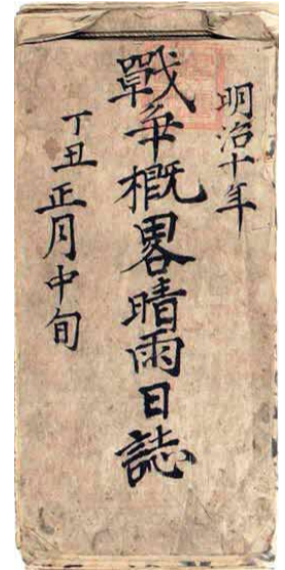 明治十年
戰争概畧晴雨日誌
丁丑正月中旬